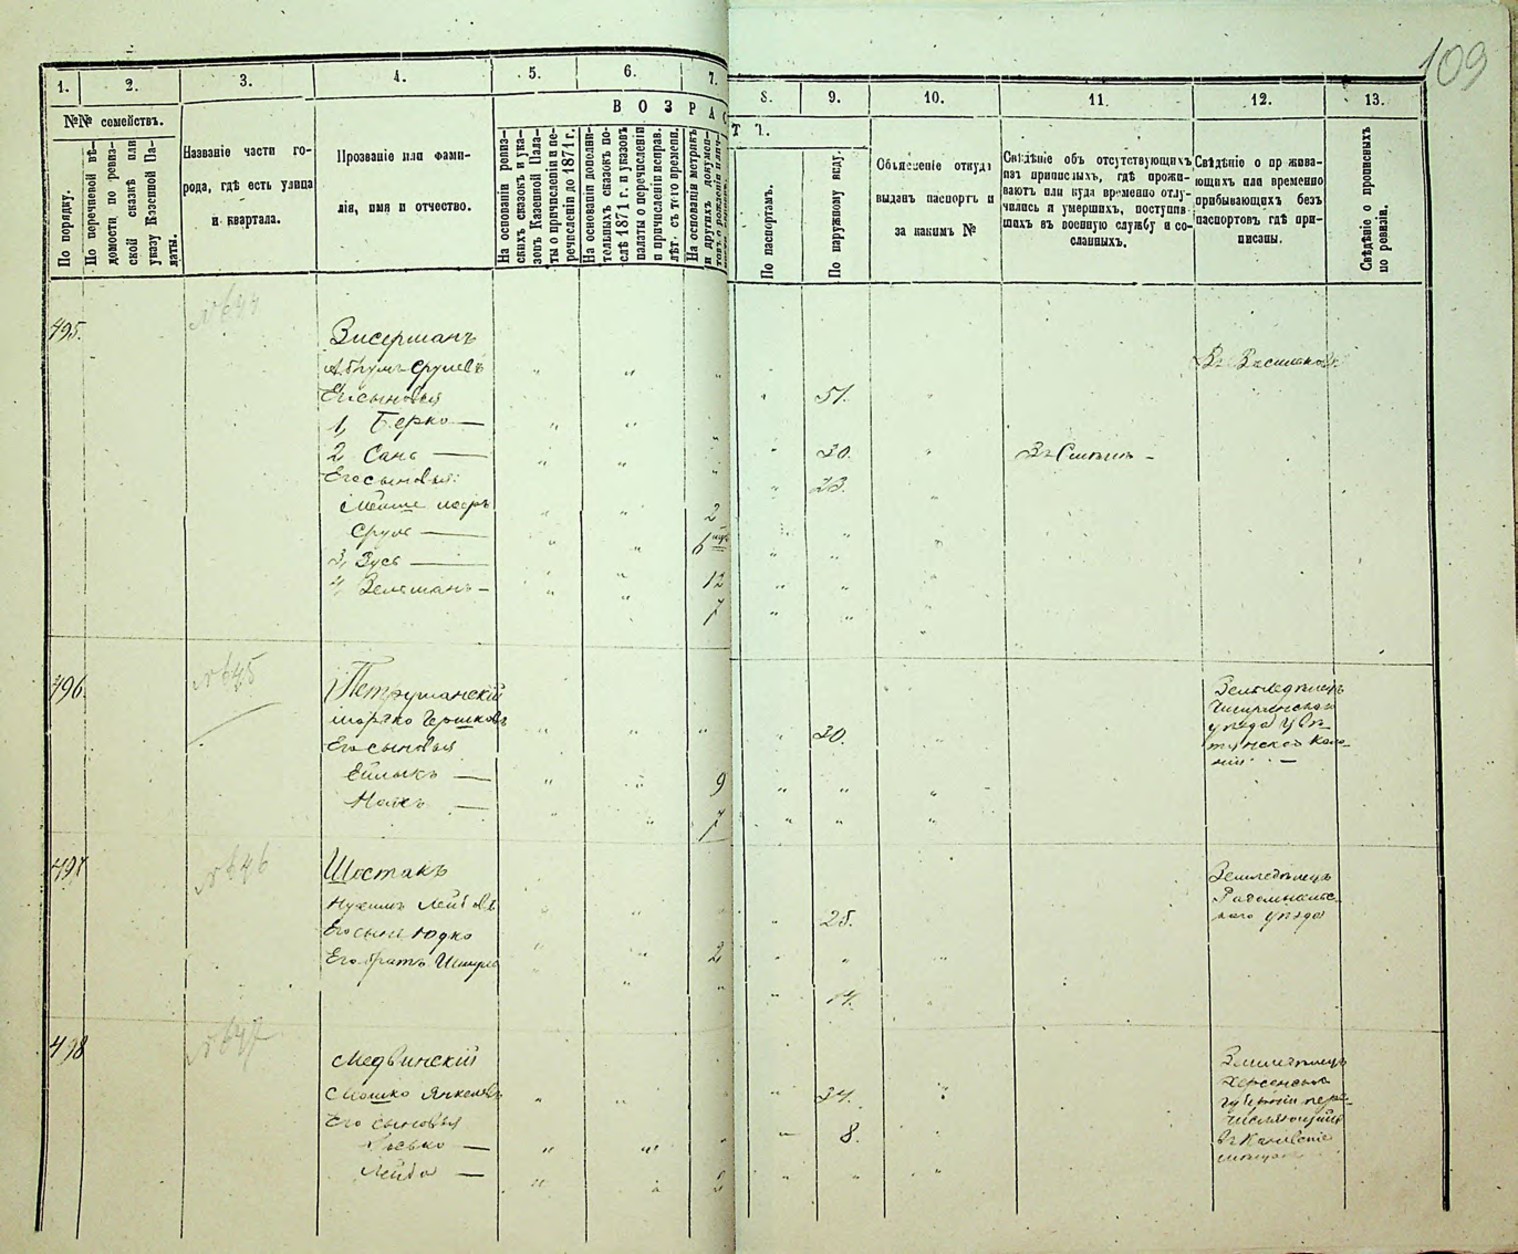 109
1. 2. 3. 4. 5. 6. 7. 8. 9. 10. 11. 12. 13.
№№ семействъ.
По порядку.
По перечневой вѣ-
домости по ревиз-
ской сказкѣ или
указу Казенной Па-
латы.
Названіе части го-
рода, гдѣ есть улица
и квартала.
Прозваніе или фами-
лія, имя и отчество.
ВОЗРАСТЪ.
На основаніи ревиз-
скихъ сказокъ и ука-
зовъ Казенной Пала-
ты о причисленіи и пе-
речисленіи до 1871 г.
На основаніи дополни-
тельныхъ сказокъ по-
слѣ 1871 г. и указовъ
палаты о перечисленіи
и причисленіи исправ.
лѣт. съ того времени.
На основаніи метрикъ
и другихъ докумен-
По паспортамъ.
По наружному виду.
Объясненіе откуда
выданъ паспортъ и
за какимъ №
Свѣдѣніе объ отсутствующихъ
изъ приписныхъ, гдѣ прожи-
ваютъ или куда временно отлу-
чились и умершихъ, поступив-
шихъ въ военную службу и со-
сланныхъ.
Свѣдѣніе о прожива-
ющихъ или временно
прибывающихъ безъ
паспортовъ гдѣ при-
писаны.
Свѣдѣніе о прописныхъ
по ревизіи.
495.
№644
Зисерманъ
Абрумъ Срулевъ 51.
Его сыновья
1, Берко — 30.
2 Сань — 23.
Его сыновья:
Сруль — 6
3, Зусь — 12
4, Зельманъ — 7
496
№645
Петрушанскій
Мортко Гершковъ 30.
Его сыновья
9
7
Земледѣлецъ
уѣзда
497
№646
Шостакъ
Нухимъ Лейбовъ 25.
Его сынъ Юдко 2
Его братъ 14.
Земледѣлецъ
уѣзда
498
№647
Медвинскій
Мошко Янкелевъ 34.
Его сыновья
Іосько — 8.
Лейба —
Земледѣлецъ
Херсонской
губерніи